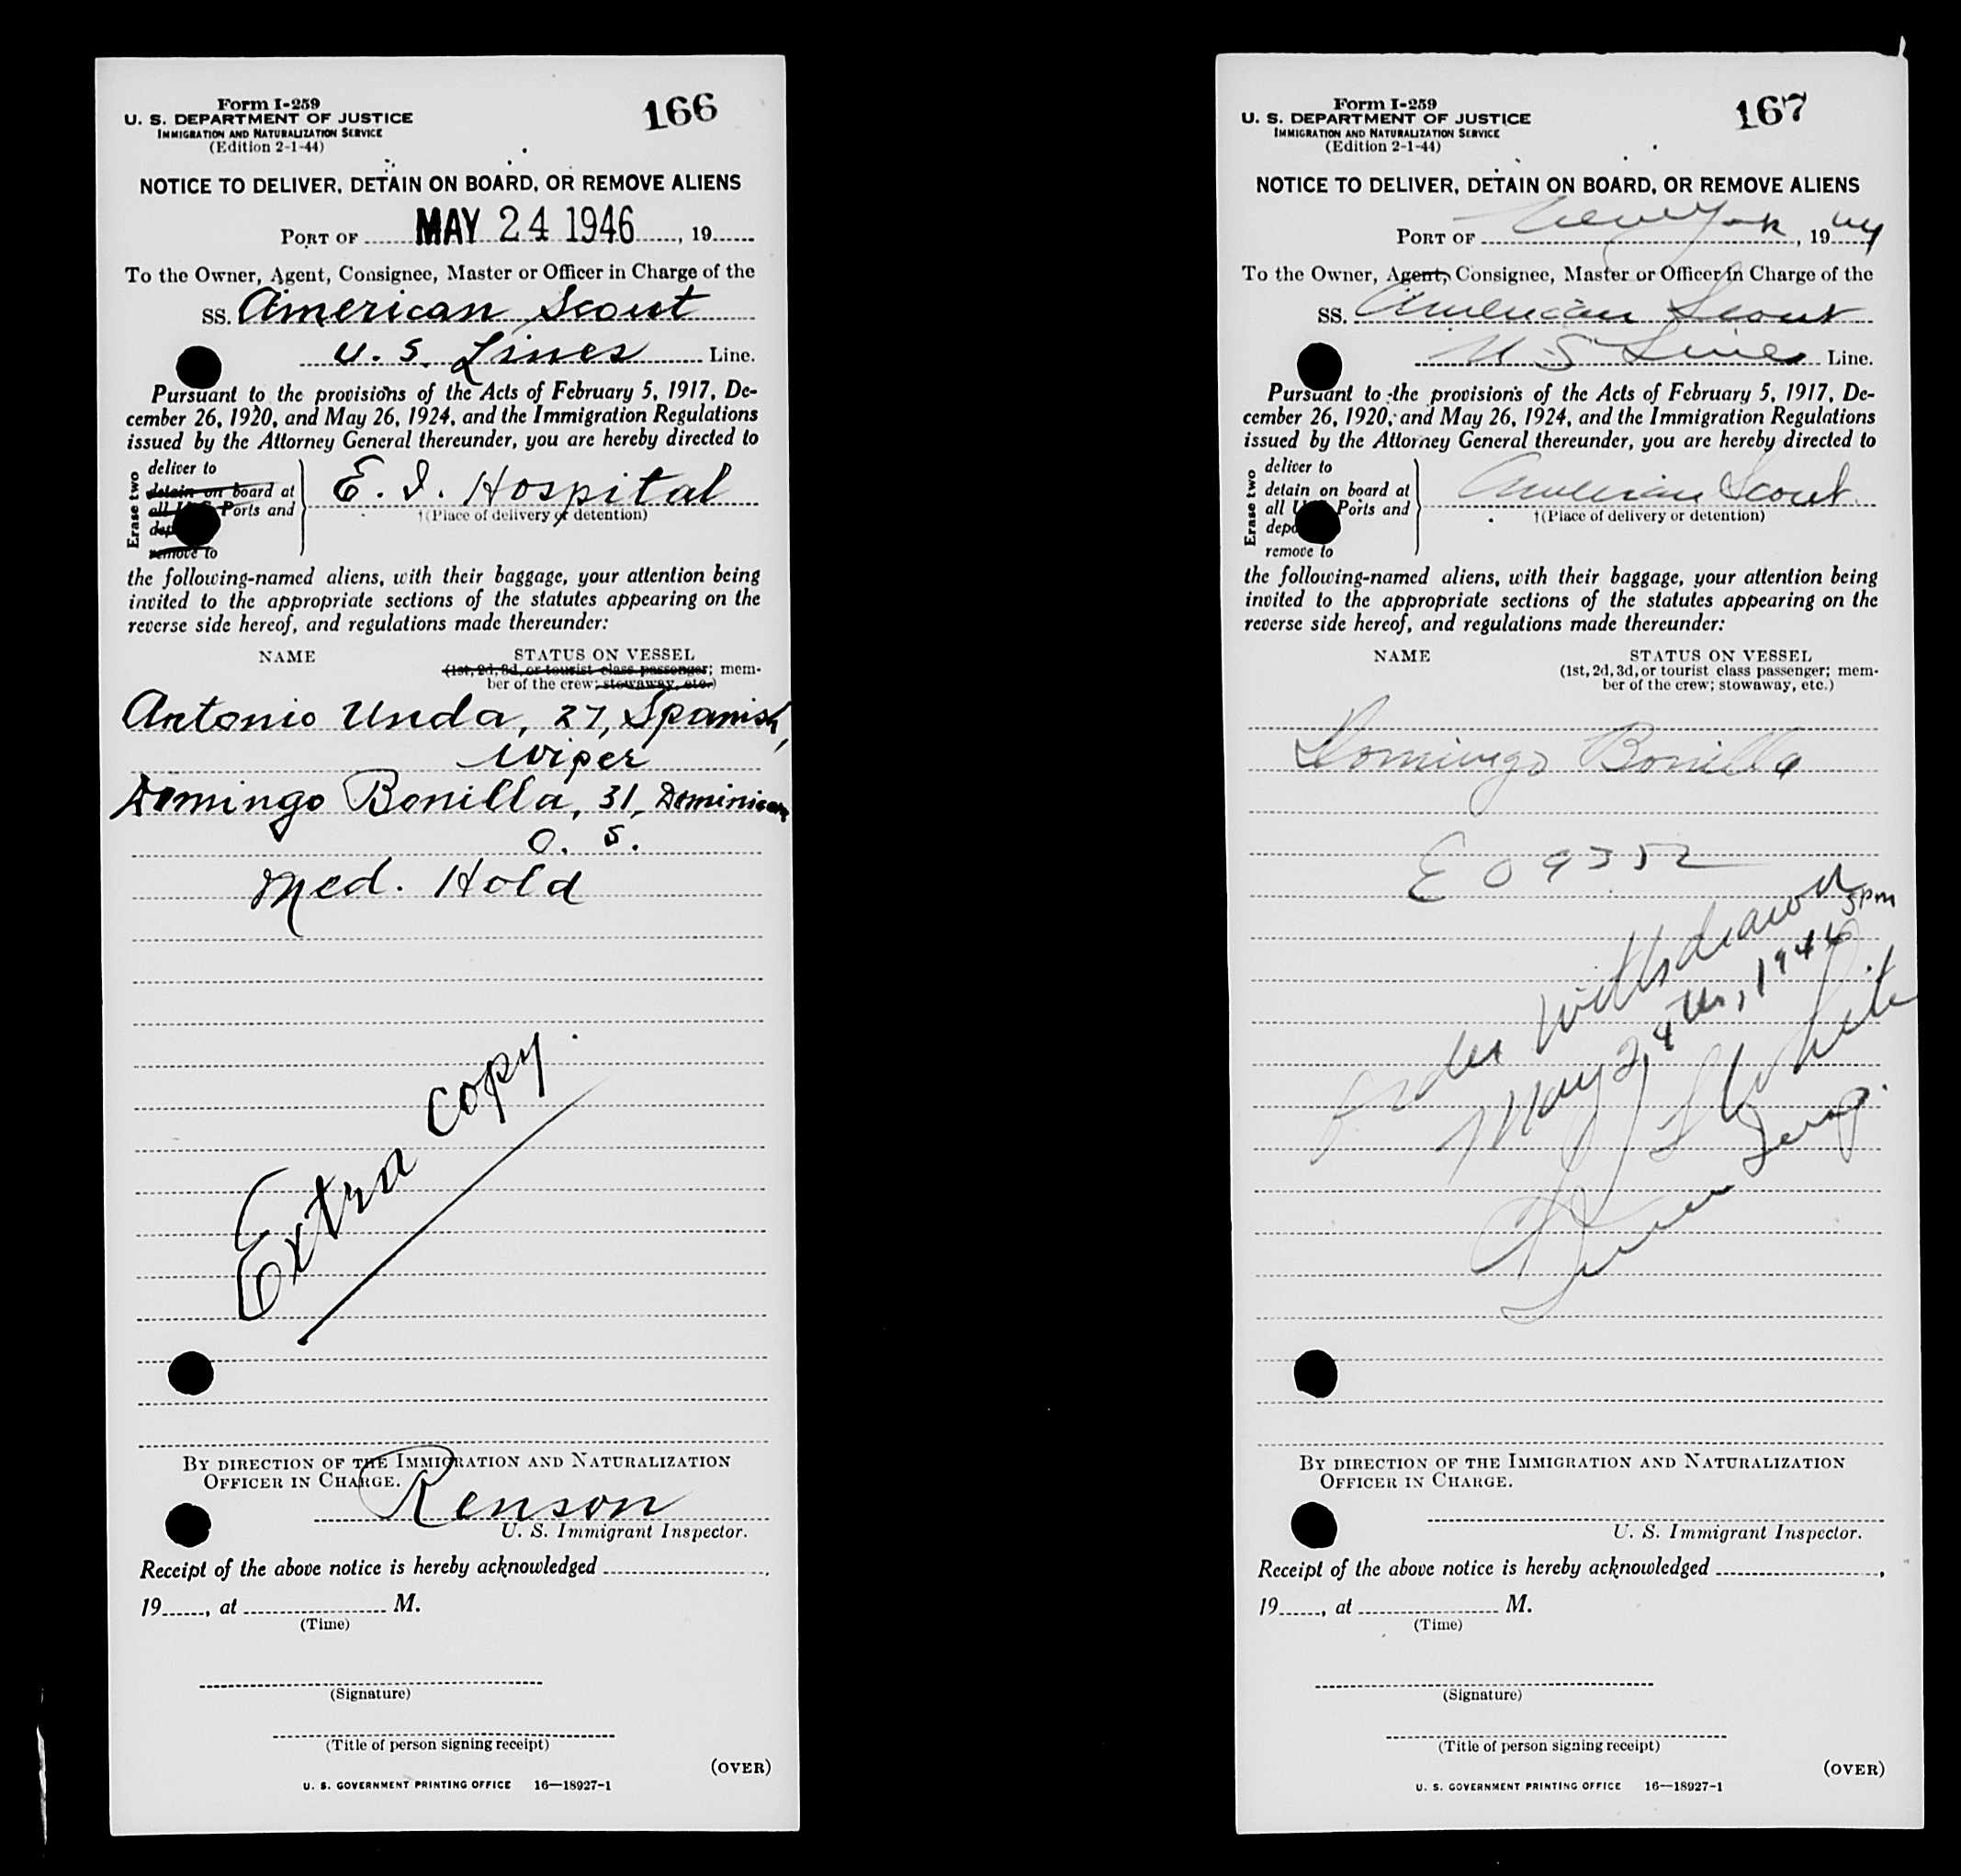 Form I-259
U. S. DEPARTMENT OF JUSTICE
IMMIGRATION AND NATURALIZATION SERVICE
(Edition 2-1-44)
166
NOTICE TO DELIVER, DETAIN ON BOARD, OR REMOVE ALIENS
PORT OF MAY 24 1946, 19
To the Owner, Agent, Consignee, Master or Officer in Charge of the
SS. American Scout
U. S. Lines Line.
Pursuant to the provisions of the Acts of February 5, 1917, De-
cember 26, 1920, and May 26, 1924, and the Immigration Regulations
issued by the Attorney General thereunder, you are hereby directed to
Erase two
deliver to
detain on board at
all Ports and
remove to
E. I. Hospital
†(Place of delivery or detention)
the following-named aliens, with their baggage, your attention being
invited to the appropriate sections of the statutes appearing on the
reverse side hereof, and regulations made thereunder:
NAME STATUS ON VESSEL
(1st, 2d, 3d, or tourist class passenger; mem-
ber of the crew; stowaway, etc.)
Antonio Unda, 27, Spanish,
Wiper
Domingo Bonilla, 31, Dominican
O. S.
Med. Hold
Extra copy.
BY DIRECTION OF THE IMMIGRATION AND NATURALIZATION
OFFICER IN CHARGE.
Renson
U. S. Immigrant Inspector.
Receipt of the above notice is hereby acknowledged ,
19 , at M.
(Time)
(Signature)
(Title of person signing receipt)
(OVER)
U. S. GOVERNMENT PRINTING OFFICE 16—18927-1
Form I-259
U. S. DEPARTMENT OF JUSTICE
IMMIGRATION AND NATURALIZATION SERVICE
(Edition 2-1-44)
167
NOTICE TO DELIVER, DETAIN ON BOARD, OR REMOVE ALIENS
PORT OF New York, 19
To the Owner, Agent, Consignee, Master or Officer in Charge of the
SS. American Scout
U S Line Line.
Pursuant to the provisions of the Acts of February 5, 1917, De-
cember 26, 1920, and May 26, 1924, and the Immigration Regulations
issued by the Attorney General thereunder, you are hereby directed to
Erase two
deliver to
detain on board at
all Ports and
remove to
American Scout
†(Place of delivery or detention)
the following-named aliens, with their baggage, your attention being
invited to the appropriate sections of the statutes appearing on the
reverse side hereof, and regulations made thereunder:
NAME STATUS ON VESSEL
(1st, 2d, 3d, or tourist class passenger; mem-
ber of the crew; stowaway, etc.)
Domingo Bonilla
E O 9352
order withdrawn 5pm
May 24th, 1946
BY DIRECTION OF THE IMMIGRATION AND NATURALIZATION
OFFICER IN CHARGE.
U. S. Immigrant Inspector.
Receipt of the above notice is hereby acknowledged ,
19 , at M.
(Time)
(Signature)
(Title of person signing receipt)
(OVER)
U. S. GOVERNMENT PRINTING OFFICE 16—18927-1